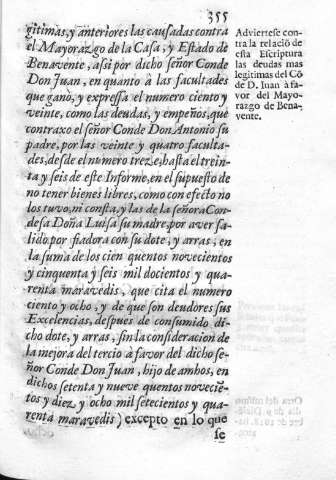 355
gitimas, y anteriores las causadas contra
el Mayorazgo de la Casa, y Estado de
Benavente, asi por dicho señor Conde
Don Juan, en quanto à las facultades
que ganò, y expressa el numero ciento y
veinte, como las deudas, y empeños, que
contraxo el señor Conde Don Antonio su
padre, por las veinte y quatro faculta-
des, desde el numero treze, hasta el trein-
ta y seis de este Informe, en el supuesto de
no tener bienes libres, como con efecto no
los tuvo, ni consta, y las de la señora Con-
desa Doña Luisa su madre, por aver sa-
lido por fiadora con su dote, y arras, en
la suma de los cien quentos novecientos
y cinquenta y seis mil docientos y qua-
renta maravedis, que cita el numero
ciento y ocho, y de que son deudores sus
Excelencias, despues de consumido di-
cho dote, y arras, sin la consideracion de
la mejora del tercio à favor del dicho se-
ñor Conde Don Juan, hijo de ambos, en
dichos setenta y nueve quentos novecie-
tos y diez y ocho mil setecientos y qua-
renta maravedis) excepto en lo que
se
Adviertese con-
tra la relaciõ de
esta Escriptura
las deudas mas
legitimas del Cõ
de D. Juan à fa-
vor del Mayo-
razgo de Bena-
vente.